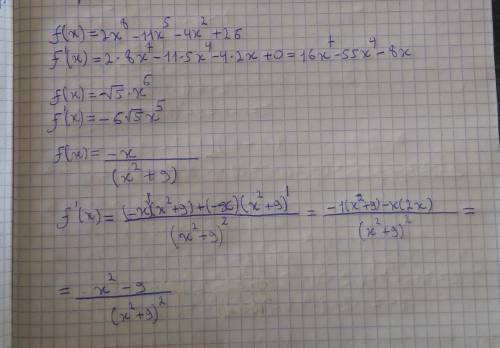 f(x)=2x⁸-11x⁵-4x²+26
f'(x)=2·8x⁷-11·5x⁴-4·2x+0=16x⁷-55x⁴-8x
f(x)=-√5·x⁶
f'(x)=-6√5x⁵
f(x)=-x/(x²+9)
f'(x)=((-x)'(x²+9)+(-x)(x²+9)')/(x²+9)²=(-1(x²+9)-x(2x))/(x²+9)²=
=(x²-9)/(x²+9)²